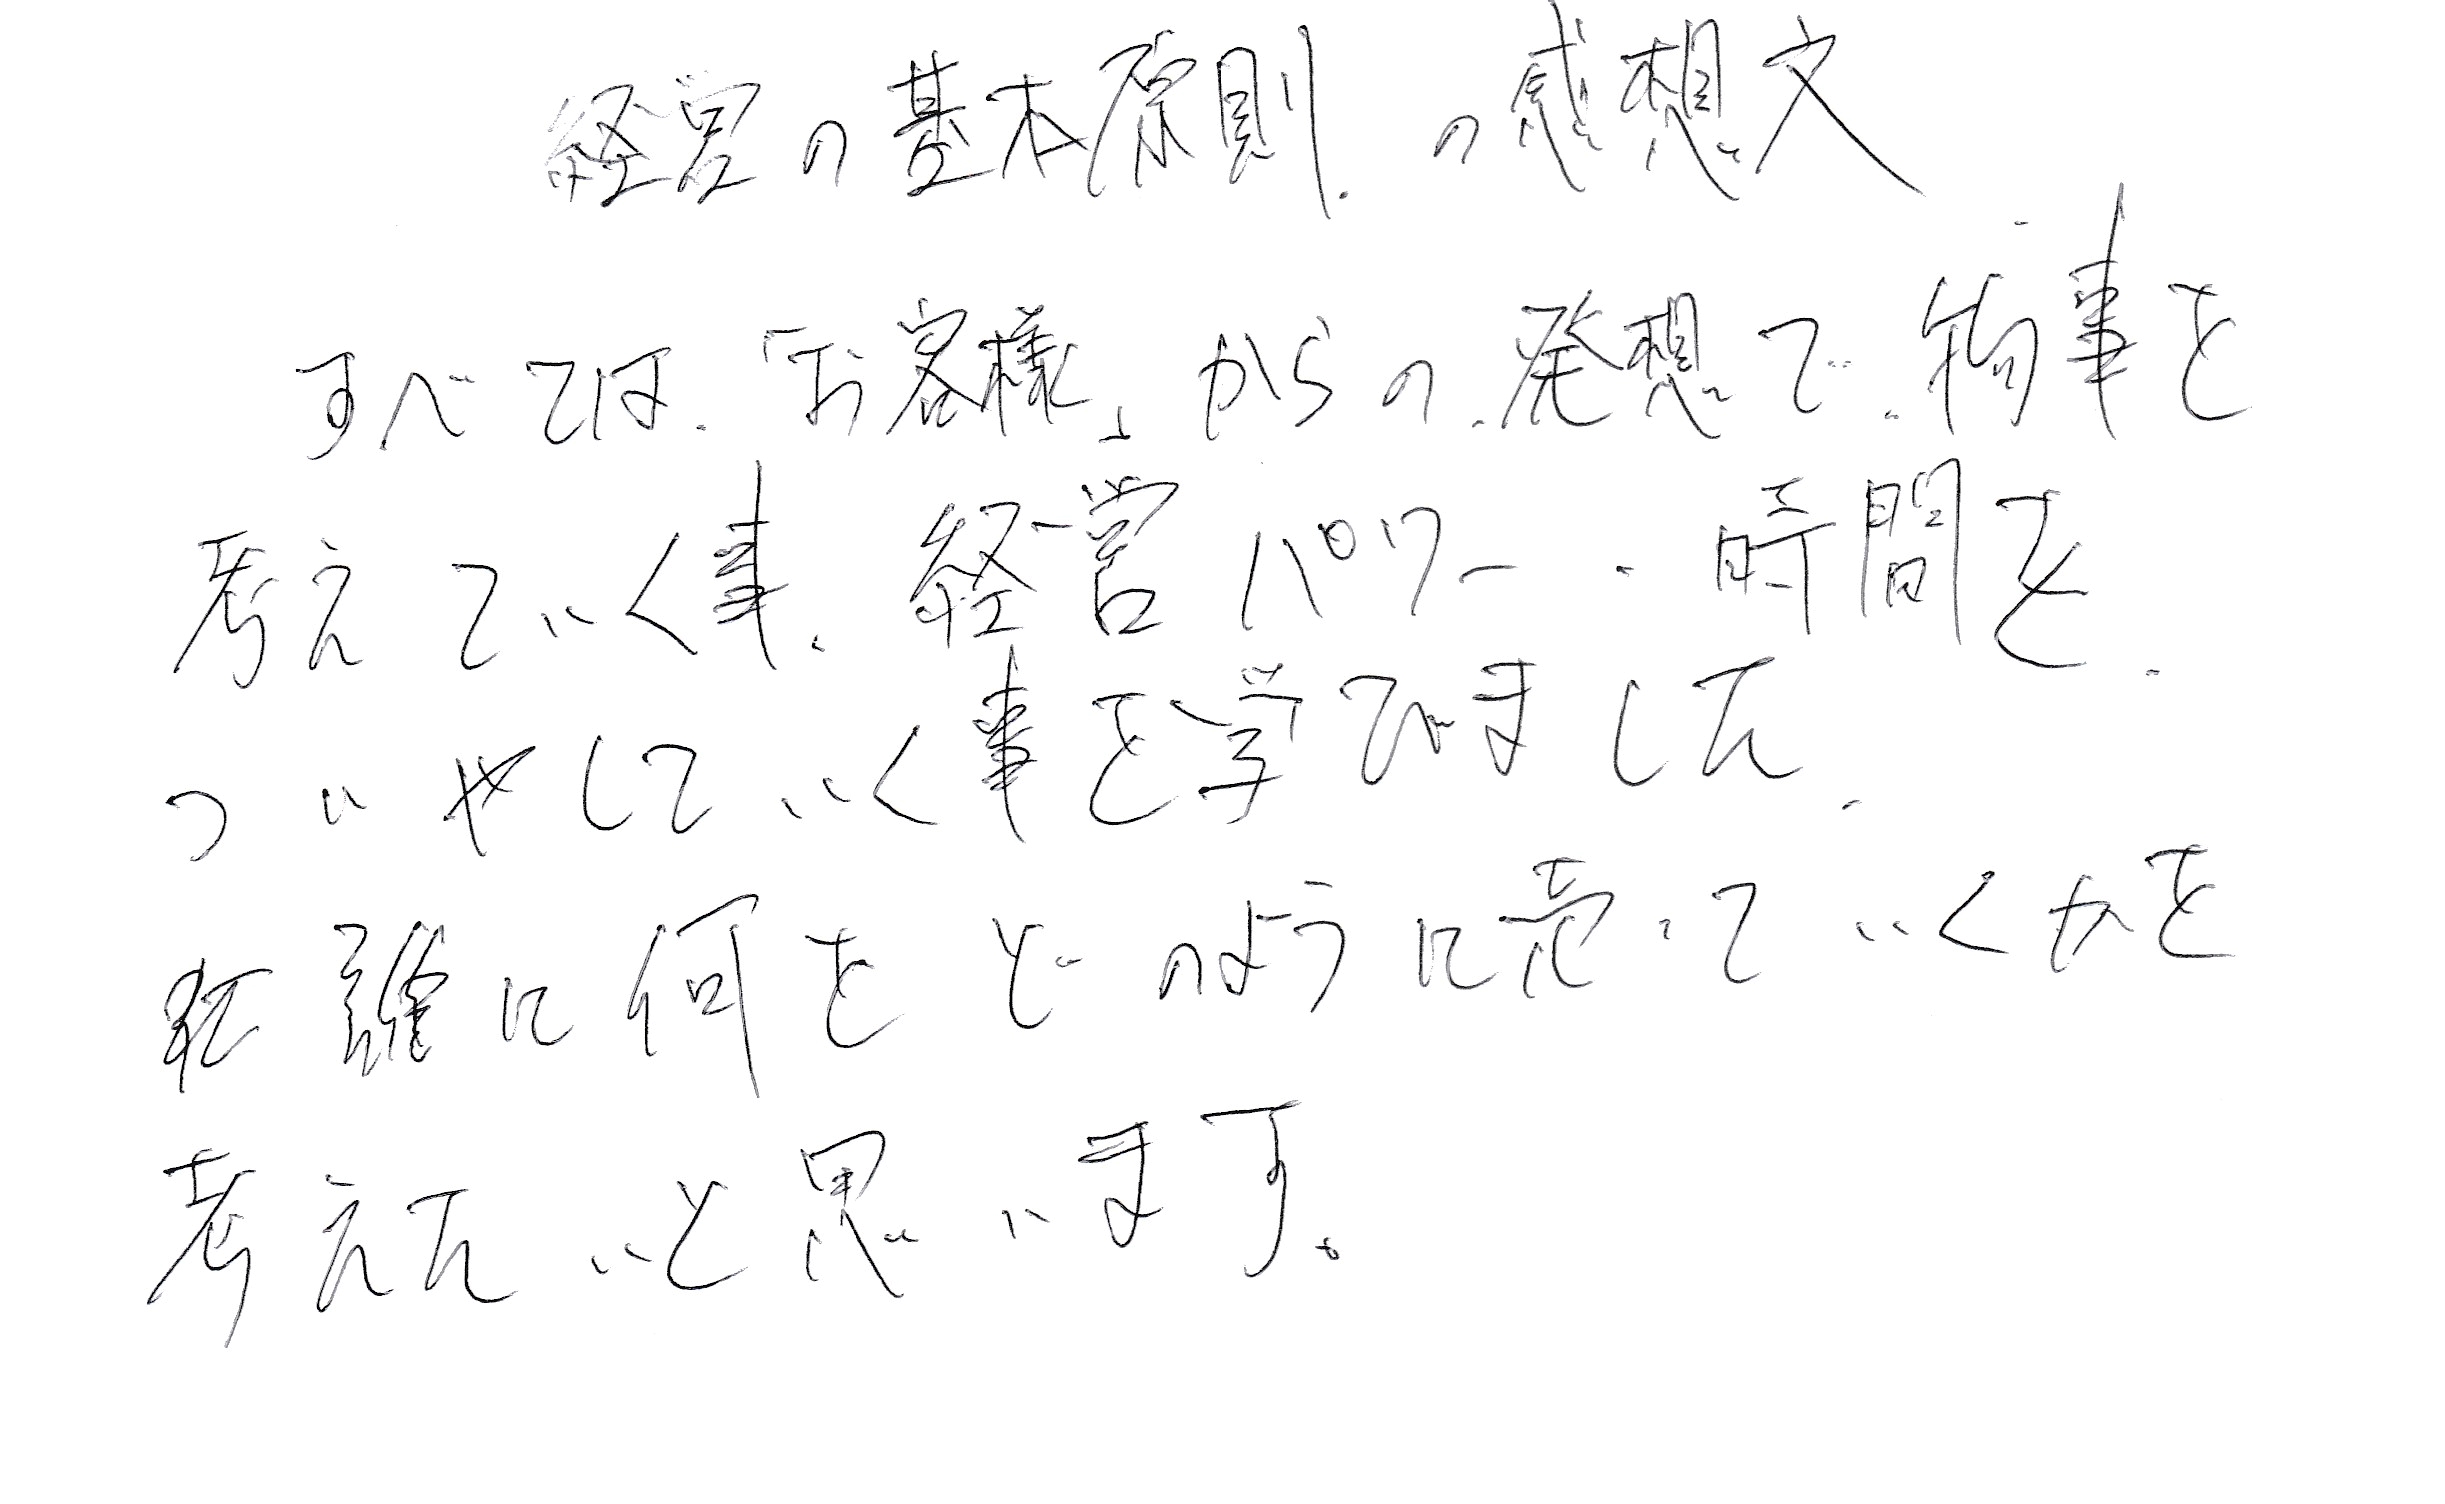 経営の基本原則の感想文
すべては「お客様」からの発想で物事を
考えていく事、経営パワー・時間を
ついやしていく事を学びました。
誰に何をどのように売っていくかを
考えたいと思います。